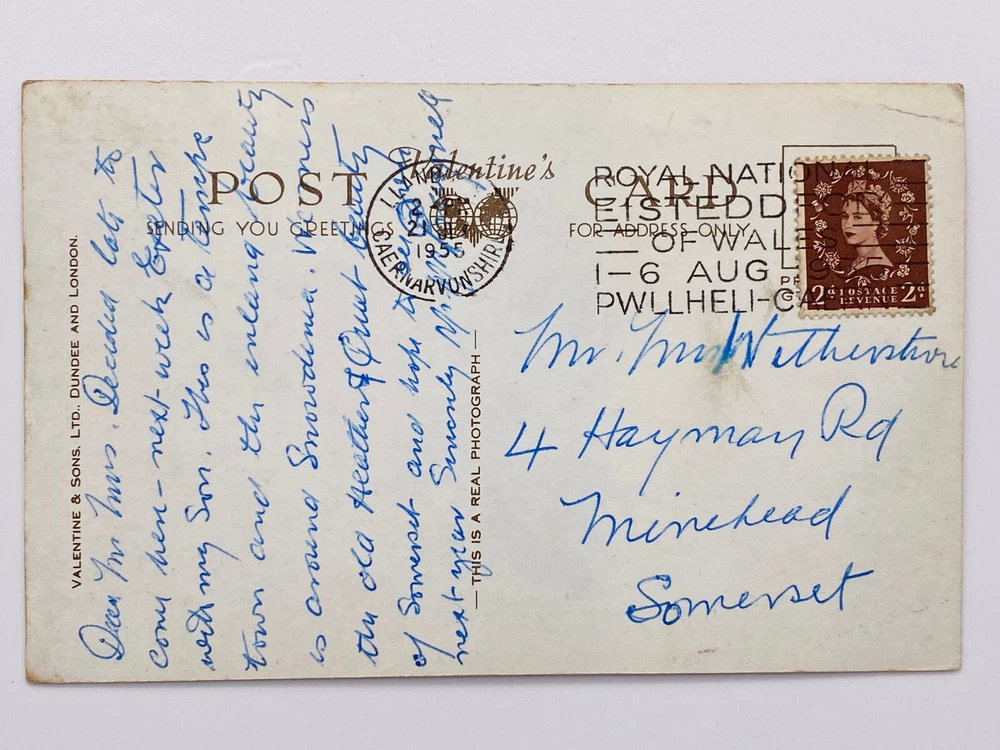 VALENTINE & SONS, LTD., DUNDEE AND LONDON.
POST CARD
Valentine's
SENDING YOU GREETINGS
FOR ADDRESS ONLY
— THIS IS A REAL PHOTOGRAPH —
21
1955
CAERNARVONSHIRE
ROYAL NATIONAL
EISTEDDFOD
— OF WALES —
1–6 AUG
PWLLHELI-CA
2d POSTAGE REVENUE 2d
Dear Mr Mrs. Decided late to
come here – next week Exeter
with my Son. This is a
town and the inland beauty
is around Snowdonia.
the old Heather & beauty
of Somerset and hope to
next year Sincerely
Mr. Mrs
4 Hayman Rd
Minehead
Somerset